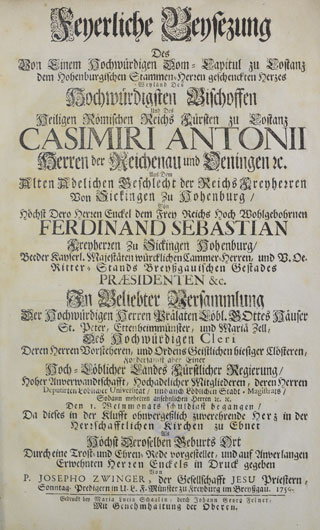 Feyerliche Beysezung
Des
Von Einem Hochwürdigen Dom-Capitul zu Costanz
dem Hohenburgischen Stammen-Herren geschenckten Herzes
Weyland Des
Hochwürdigsten Bischoffen
Und Des
Heiligen Römischen Reichs Fürsten zu Costanz
CASIMIRI ANTONII
Herren der Reichenau und Oeningen ꝛc.
Aus Dem
Alten Adelichen Geschlecht der Reichs Freyherren
Von Sickingen Zu Hohenburg /
Von
Höchst Dero Herren Enckel dem Frey Reichs Hoch Wohlgebohrnen
FERDINAND SEBASTIAN
Freyherren Zu Sickingen Hohenburg /
Beeder Kayserl. Majestäten würcklichen Cammer-Herren, und V. Oe.
Ritter-Stands Breyßgauischen Gestades
PRÆSIDENTEN &c.
In Beliebter Versammlung
Der Hochwürdigen Herren Prälaten Löbl. GOttes Häuser
St. Peter, Ettenheimmünster, und Mariä Zell,
Des Hochwürdigen Cleri
Deren Herren Vorsteheren, und Ordens Geistlichen hiesiger Clösteren,
Forderdamst aber Einer
Hoch-Löblicher Landes Fürstlicher Regierung /
Hoher Anverwandtschafft, Hochadelicher Mitgliederen, deren Herren
Deputirten Löblicher Universität / und auch Löblichen Stadt-Magistrats /
Sodann geehrten ansehnlichen Herren ꝛc. ꝛc.
Den 1. Weinmonats schuldigst begangen /
Da dieses in der Klufft ohnvergeßlich zuverehrende Herz in der
Herrschafftlichen Kirchen zu Ebnet
Als
Höchst Deroselben Geburts Ort
Durch eine Trost- und Ehren-Rede vorgestellet, und auf Anverlangen
Erwehnten Herren Enckels in Druck gegeben
Von
P. JOSEPHO ZWINGER, der Gesellschafft JEsu Priestern,
Sonntag-Predigern in U. L. F. Münster zu Freyburg im Breyßgau. 1750.
Gedruckt bey Maria Lucia Schaalin, durch Johann Georg Felner.
Mit Genehmhaltung der Oberen.